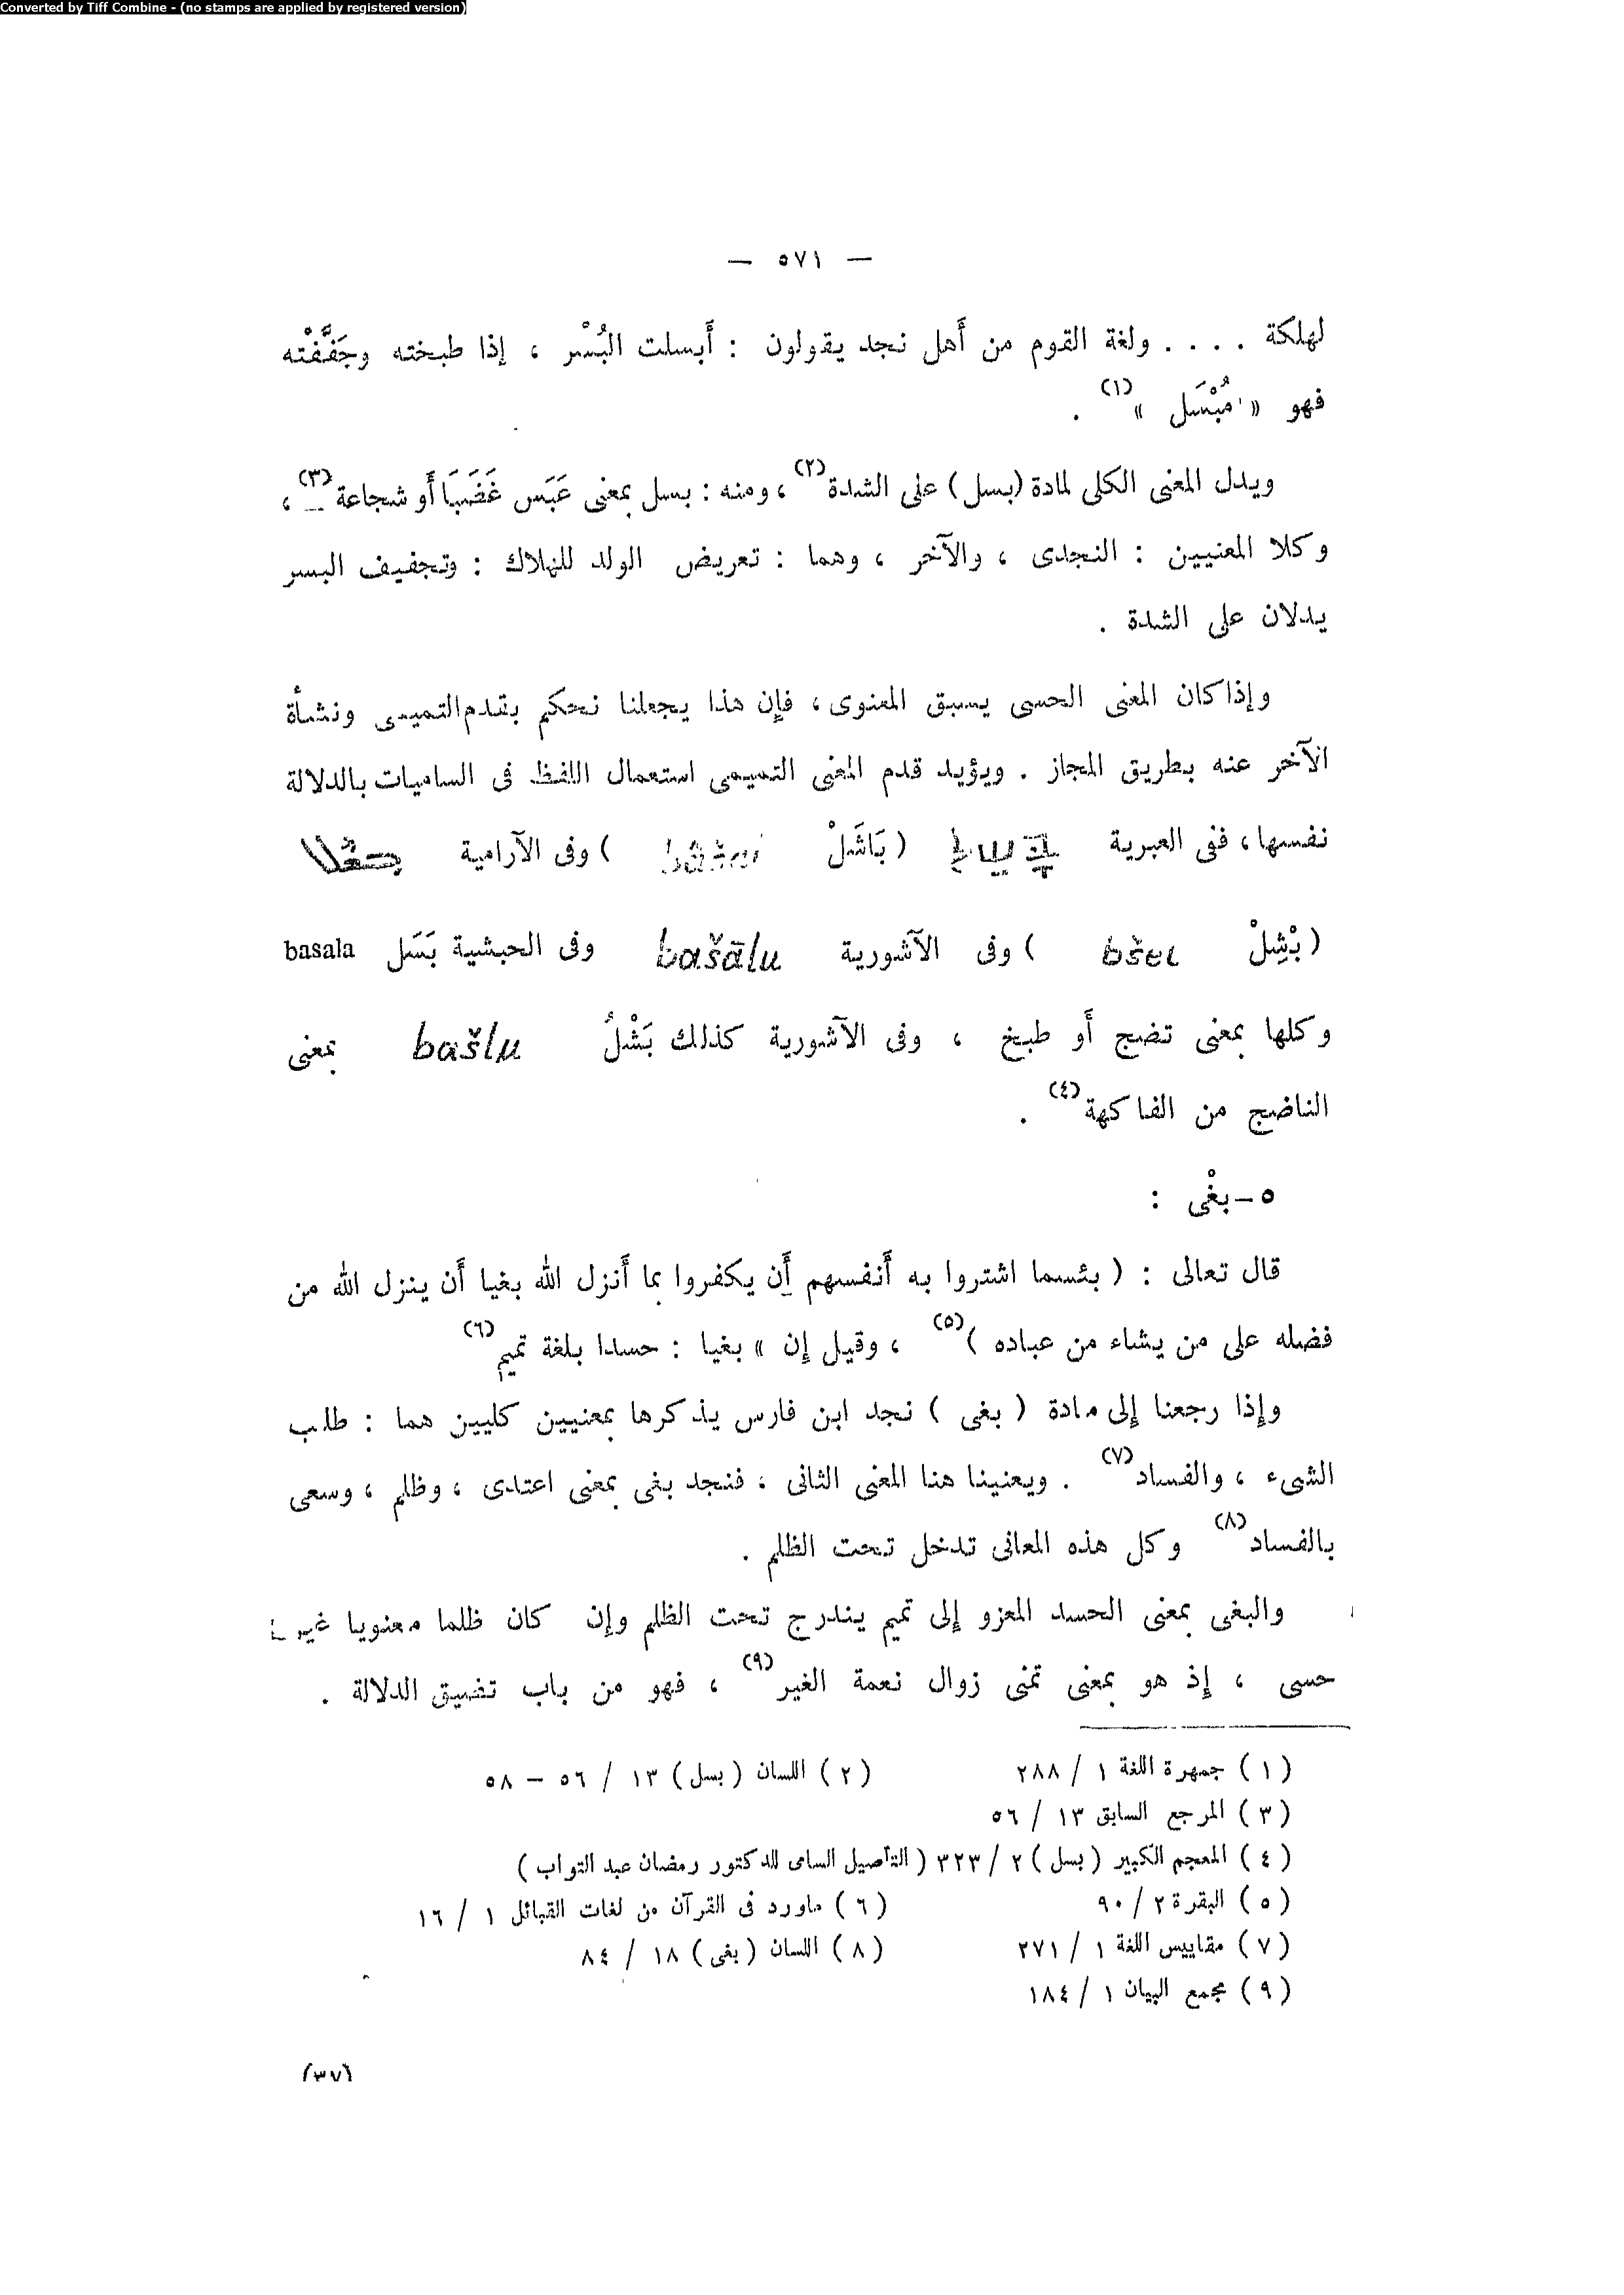 Converted by Tiff Combine - (no stamps are applied by registered version)
— ٥٧١ —
لهلكة . . . . ولغة القوم من أَهل نجد يقولون : أَبسلت البُسْر ، إذا طبخته وجَفَّفْته
فهو « مُبْسَل »(١) .
ويدل المعنى الكلى لمادة (بسل) على الشدة(٢) ، ومنه : بسل بمعنى عَبَس غَضَبَا أَو شجاعة(٣) ،
وكلا المعنيين : النجدى ، والآخر ، وهما : تعريض الولد للهلاك : وتجفيف البسر
يدلان على الشدة .
وإذا كان المعنى الحسى يسبق المعنوى ، فإِن هذا يجعلنا نحكم بقدم التميمى ونشأة
الآخر عنه بطريق المجاز . ويؤيد قدم المعنى التميمى استعمال اللفظ فى الساميات بالدلالة
نفسها ، ففى العبرية בָּשַׁל ( بَاشَلْ ) وفى الآرامية ܒܫܠ
( بْشِلْ bšel ) وفى الآشورية bašālu وفى الحبشية بَسَل basala
وكلها بمعنى تضج أَو طبخ ، وفى الآشورية كذلك بَشْلُ bašlu بمعنى
الناضج من الفاكهة(٤) .
٥ – بغْى :
قال تعالى : ( بئسما اشتروا به أَنفسهم أَن يكفروا بما أَنزل الله بغيا أَن ينزل الله من
فضله على من يشاء من عباده )(٥) ، وقيل إِن » بغيا : حسدا بلغة تميم(٦)
وإِذا رجعنا إِلى مادة ( بغى ) نجد ابن فارس يذكرها بمعنيين كليين هما : طلب
الشىء ، والفساد(٧) . ويعنينا هنا المعنى الثانى ، فنجد بغى بمعنى اعتدى ، وظلم ، وسعى
بالفساد(٨) وكل هذه المعانى تدخل تحت الظلم .
والبغى بمعنى الحسد المعزو إِلى تميم يندرج تحت الظلم وإِن كان ظلما معنويا غير
حسى ، إِذ هو بمعنى تمنى زوال نعمة الغير(٩) ، فهو من باب تضيق الدلالة .
(١) جمهرة اللغة ١ / ٢٨٨ (٢) اللسان (بسل) ١٣ / ٥٦ – ٥٨
(٣) المرجع السابق ١٣ / ٥٦
(٤) المعجم الكبير (بسل) ٢ / ٣٢٣ (التأصيل السامى للدكتور رمضان عبد التواب)
(٥) البقرة ٢ / ٩٠ (٦) ماورد فى القرآن من لغات القبائل ١ / ١٦
(٧) مقاييس اللغة ١ / ٢٧١ (٨) اللسان (بغى) ١٨ / ٨٤
(٩) مجمع البيان ١ / ١٨٤
(٣٧)